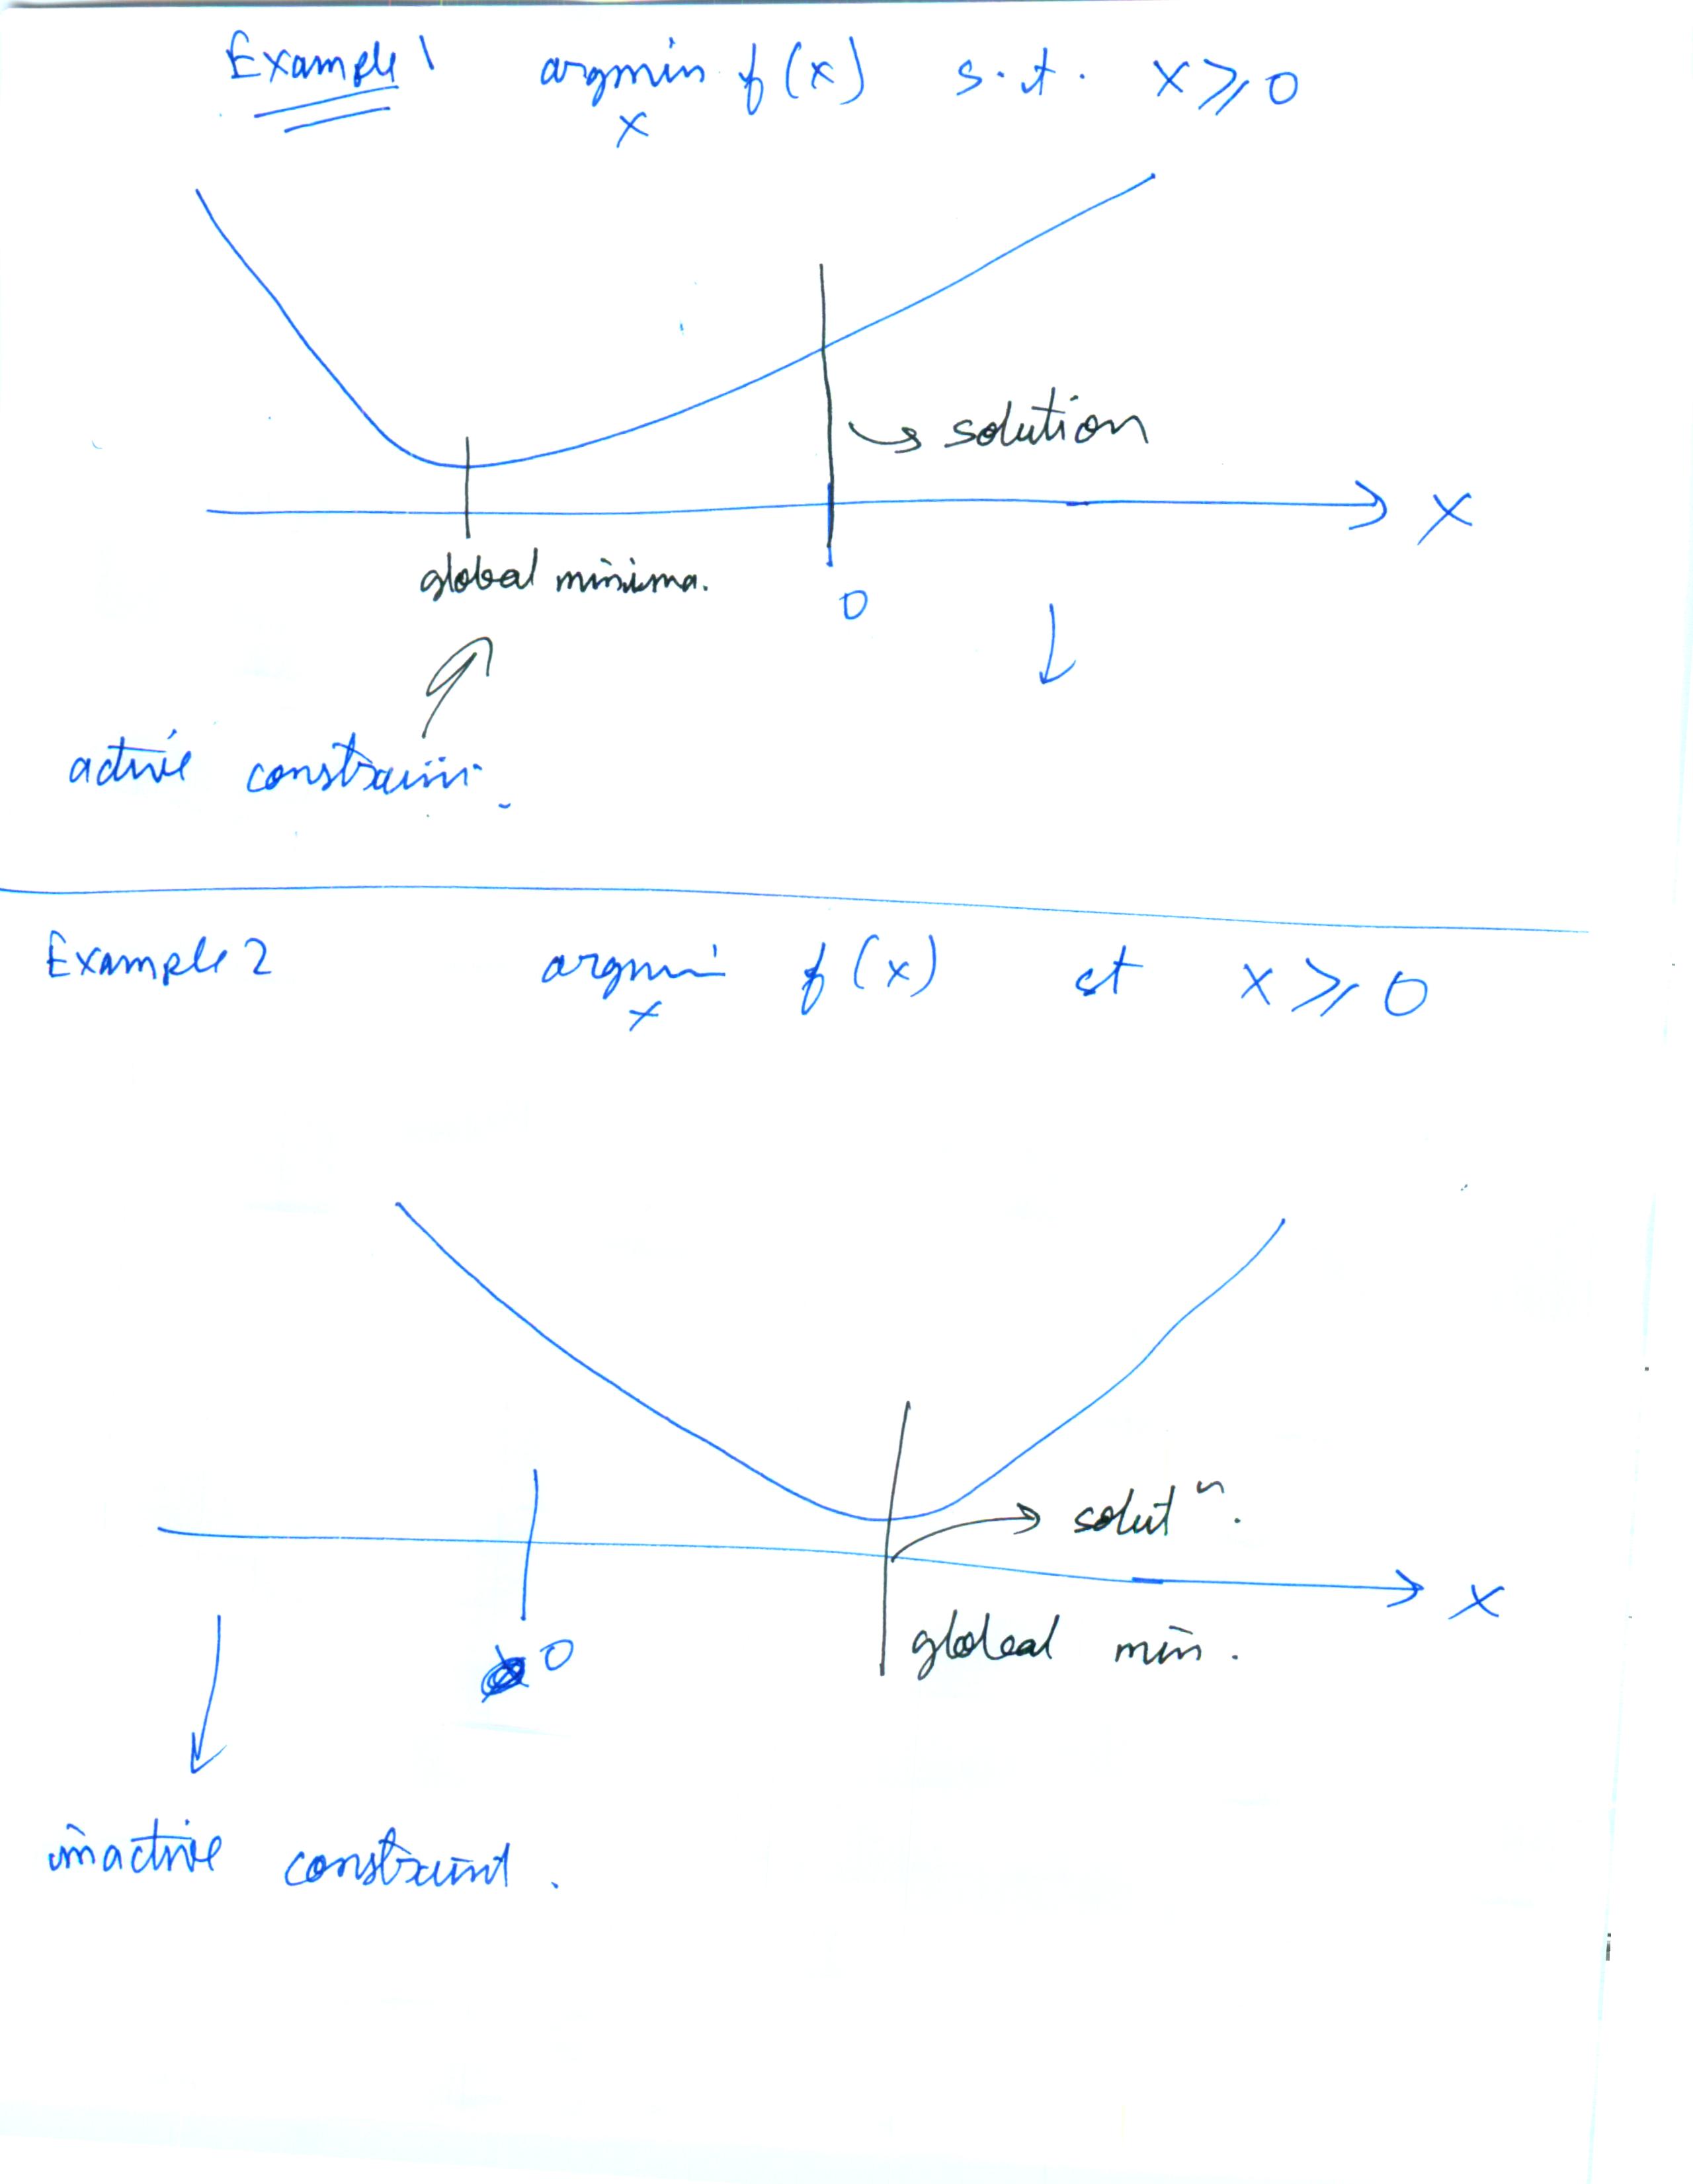 Example 1 argmin f(x) s.t. x ⩾ 0
x
solution
x
global minima.
0
active
Example 2 argmi f(x) st x ⩾ 0
x
solutⁿ.
x
global min.
0
inactive constraint.